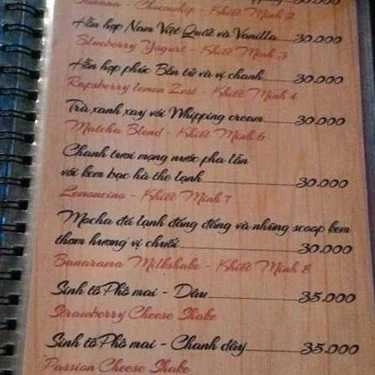 Banana - Chocochip - Khiết Minh 2
Hỗn hợp Nam Việt Quất và Vanilla 30.000
Blueberry Yogurt - Khiết Minh 3
Hỗn hợp phúc Bồn tử và vị chanh 30.000
Rapsberry lemon Zest - Khiết Minh 4
Trà xanh xay với Whipping cream 30.000
Matcha Blend - Khiết Minh 6
Chanh tươi mọng nước pha lẫn
với kem bạc hà the lạnh 30.000
Lemoncina - Khiết Minh 7
Mocha đá lạnh đồng đồng và những scoop kem
thơm hương vị chuối 30.000
Bananarama Milkshake - Khiết Minh 8
Sinh tố Phô mai - Dâu 35.000
Strawberry Cheese Shake
Sinh tố Phô mai - Chanh dây 35.000
Passion Cheese Shake